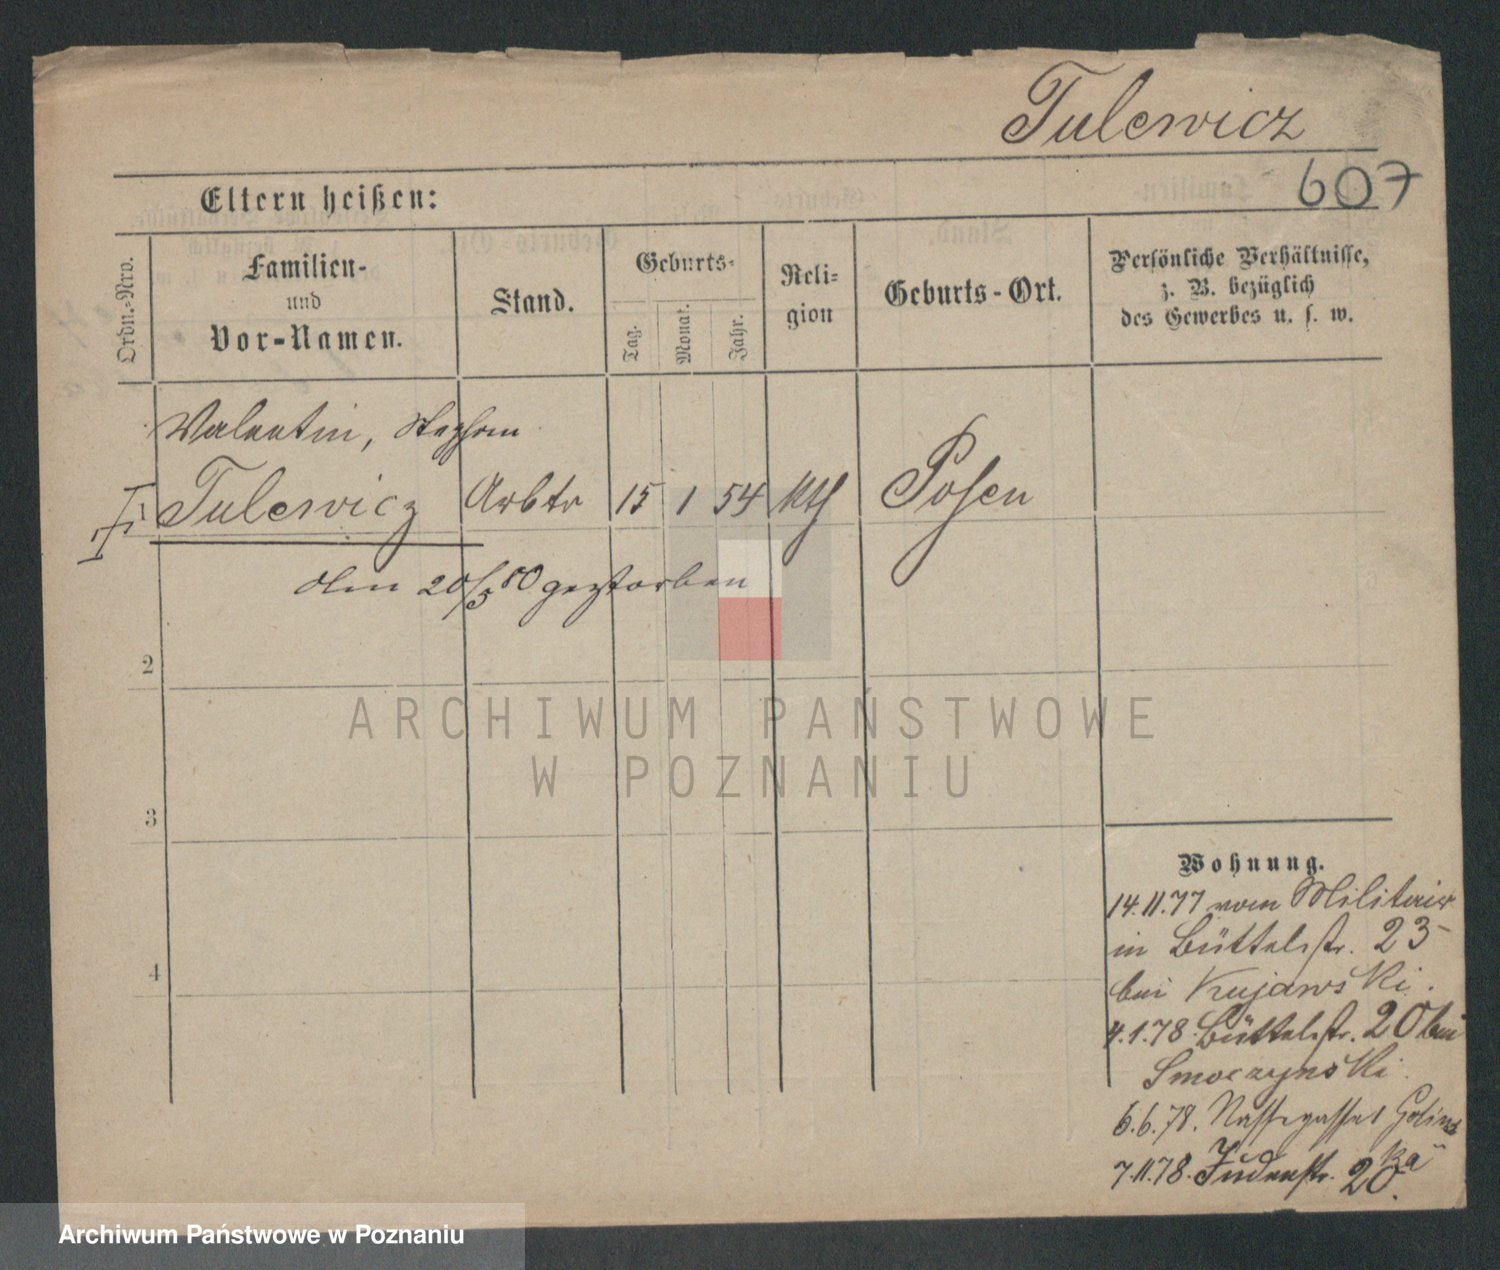 Tulewicz
607
Eltern heißen:
Ordn.-Nro.
Familien-
und
Vor-Namen.
Stand.
Geburts-
Tag.
Monat.
Jahr.
Reli-
gion
Geburts-Ort.
Persönliche Verhältnisse,
z. B. bezüglich
des Gewerbes u. s. w.
Valentin, Stephan
1 Tulewicz Arbtr 15 1 54 kth Posen
den 20/5 80 gestorben
2
3
4
Wohnung.
14.11.77 vom Militair
in Büttelstr. 23
bei Kujawski.
4.1.78 Büttelstr. 20 bei
Smoczynski.
6.6.78. Nassegasse 1 Golins
ka
7.11.78. Judenstr. 20.
ARCHIWUM PAŃSTWOWE
W POZNANIU
Archiwum Państwowe w Poznaniu